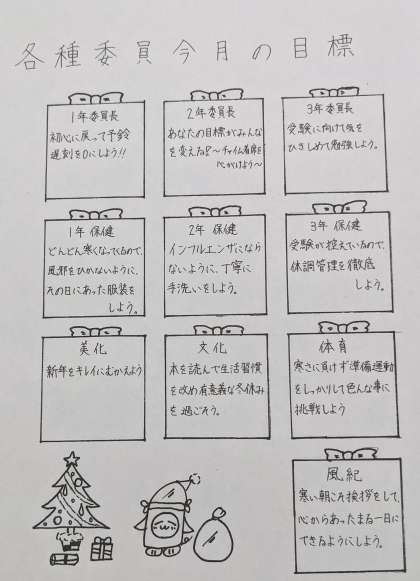 各種委員今月の目標
1年委員長
初心に戻って予鈴
遅刻を0にしよう!!
2年委員長
あなたの目標がみんな
を変える!?～チャイム着席を
心がけよう～
3年委員長
受験に向けて気を
ひきしめて勉強しよう。
1年 保健
どんどん寒くなってくるので、
風邪をひかないように、
その日にあった服装を
しよう。
2年 保健
インフルエンザになら
ないように、丁寧に
手洗いをしよう。
3年 保健
受験が控えているので、
体調管理を徹底
しよう。
美化
新年をキレイにむかえよう
文化
本を読んで生活習慣
を改め有意義な冬休み
を過ごそう。
体育
寒さに負けず準備運動
をしっかりして色んな事に
挑戦しよう
風紀
寒い朝こそ挨拶をして、
心からあったまる一日に
できるようにしよう。